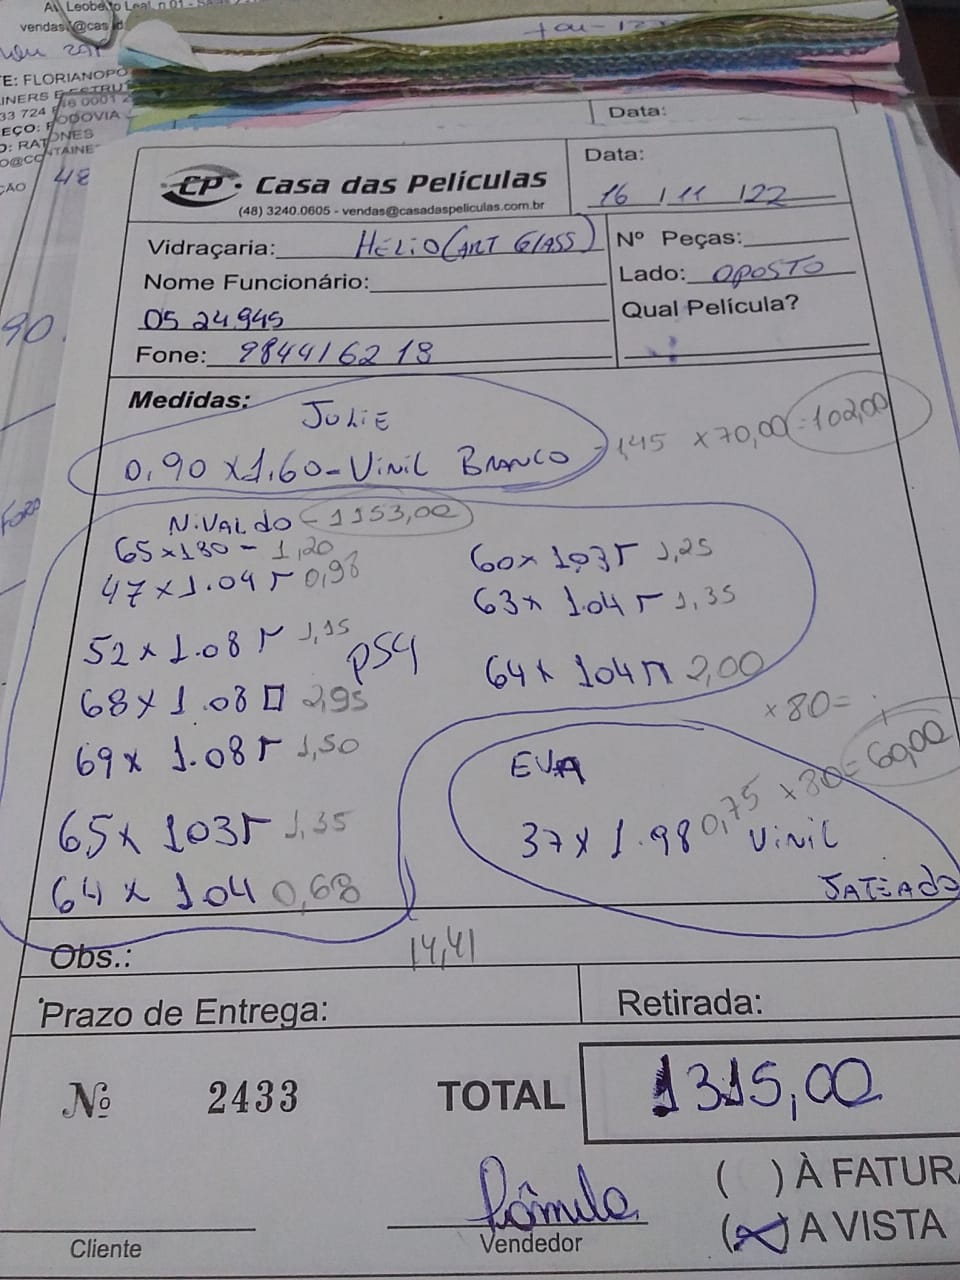 Av. Leoberto Leal, n 01 -
vendas1@cas
TE: FLORIANOPO
INERS E ESTRUT
33 724
EÇO: RODOVIA
O: RATONES
O@CONTAINE
ÇÃO 48
90.
Data:
CP · Casa das Películas
(48) 3240.0605 - vendas@casadaspeliculas.com.br
Data:
16 / 11 / 22
Vidraçaria: HELIO (ART GLASS)
Nº Peças:
Nome Funcionário:
Lado: OPOSTO
OS 24945
Qual Película?
Fone: 984416218
Medidas:
JULIE
0,90 x 1.60 - Vinil BRANCO = 1,45 x 70,00 = 102,00
NiVALdo - 1153,00
65 x 180 - 1,20
47 x 1.04 Γ 0,98
52 x 1.08 Γ 1,15
PS4
68 x 1.08 □ 2,95
69 x 1.08 Γ 1,50
65 x 103 Γ 1,35
64 x 1.04 0,68
60 x 1.03 Γ 1,25
63 x 1.04 Γ 1,35
64 x 104 Π 2,00
x 80 =
EVA
37 x 1.98 0,75 x 80 = 60,00
ViNiL
JATEADO
Obs.: 14,41
Prazo de Entrega:
Retirada:
Nº 2433
TOTAL 1315,00
( ) À FATURA
Rômulo
(X) A VISTA
Cliente
Vendedor